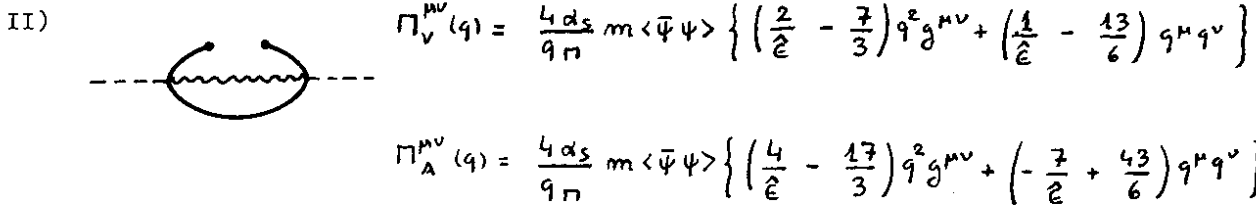 II) Π_V^{μν}(q) = \frac{4 α_s}{9 π} m <\bar{ψ} ψ> { ( \frac{2}{\hat{ε}} - \frac{7}{3} ) q^2 g^{μν} + ( \frac{1}{\hat{ε}} - \frac{13}{6} ) q^μ q^ν }
Π_A^{μν}(q) = \frac{4 α_s}{9 π} m <\bar{ψ} ψ> { ( \frac{4}{\hat{ε}} - \frac{17}{3} ) q^2 g^{μν} + ( - \frac{7}{\hat{ε}} + \frac{43}{6} ) q^μ q^ν }